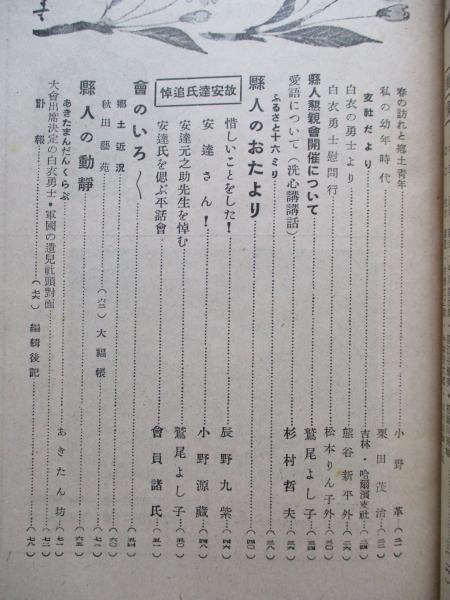 春の訪れと鄕土靑年………小野　革(二一)
私の幼年時代………栗田茂治(二二)
支社だより………吉林・哈爾濱支社(二四)
白衣の勇士より………熊谷新平外(二六)
白衣勇士慰問行………松本りん子外(三〇)
縣人懇親會開催について………鷲尾よし子(三四)
愛語について(洗心講講話)………杉村哲夫(三六)
ふるさと十六ミリ………(三八)
縣人のおたより………(四〇)
故安達氏追悼
惜しいことをした！………辰野九紫(四六)
安達さん！………小野源藏(四八)
安達元之助先生を悼む………鷲尾よし子(五〇)
安達氏を偲ぶ平話會………會員諸氏(五一)
會のいろ〱………(五四)
鄕土近況………(六〇)
秋田藝苑………(六二)　大福帳………(七一)
縣人の動靜………(六五)
あきたまんだんくらぶ………あきたん坊(七一)
大會出席決定の白衣勇士・軍國の遺兒社頭對面………(七二)
訃報………(七六)　編輯後記………(七八)